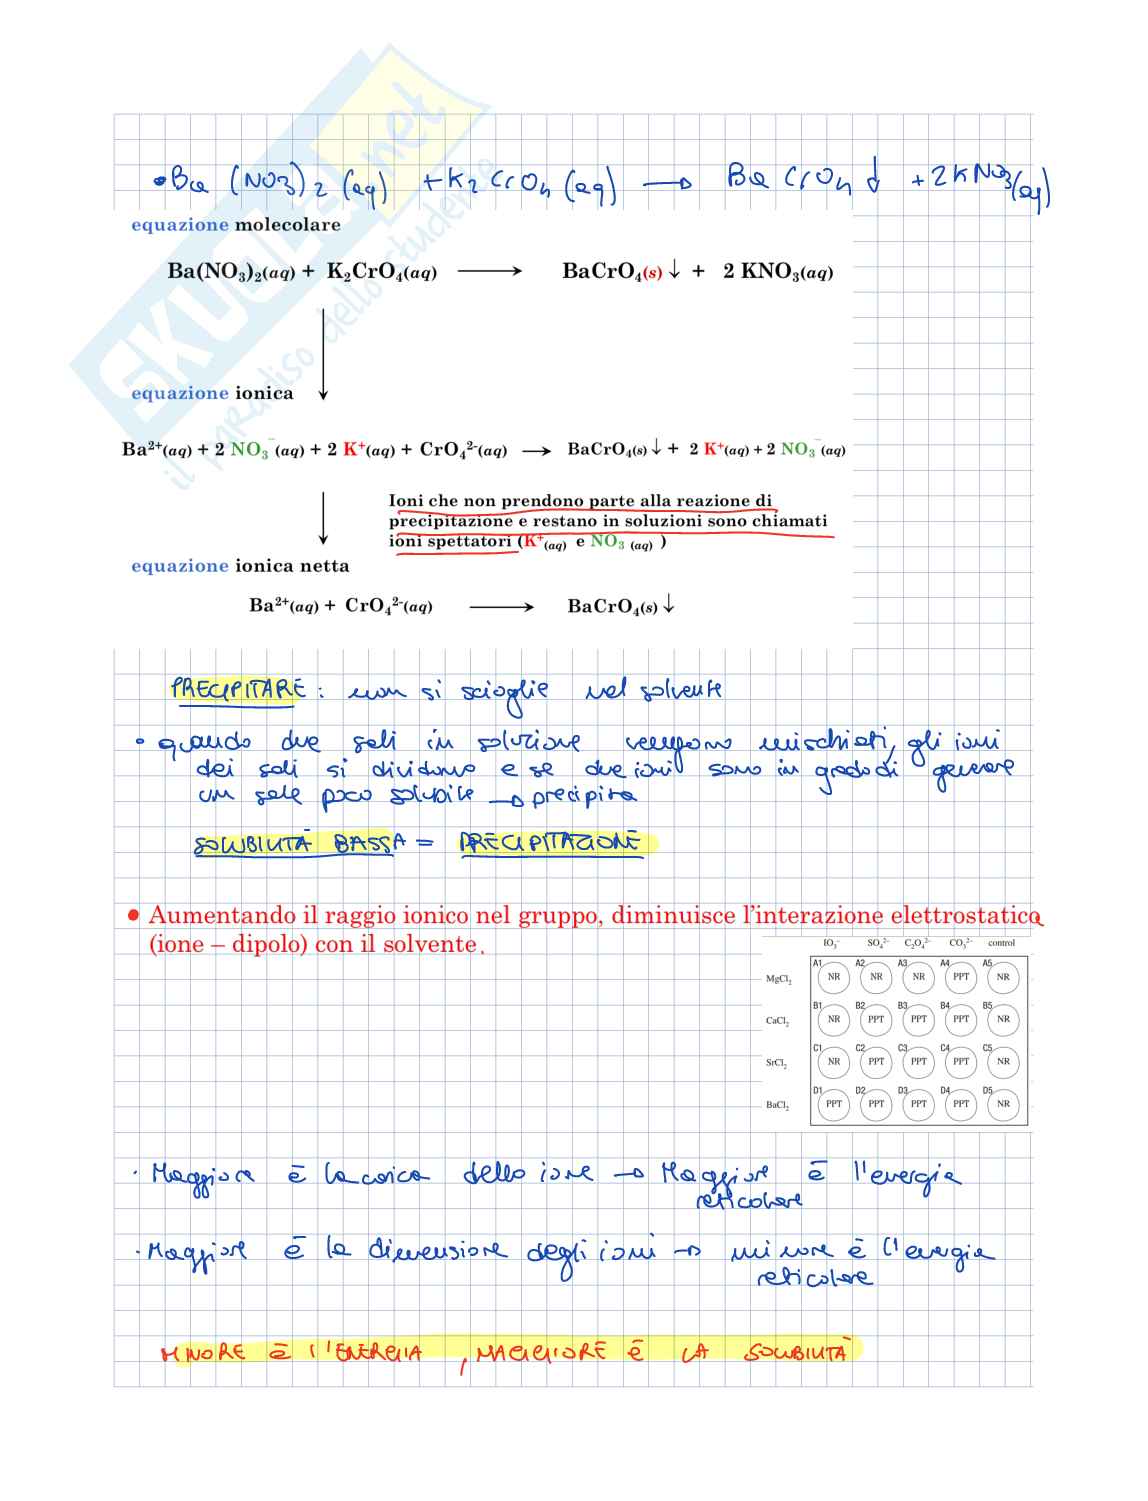 SKUOLA.net
il paradiso dello studente
• Ba (NO3)2 (aq) + K2 CrO4 (aq) → Ba CrO4 ↓ + 2 K NO3 (aq)
equazione molecolare
Ba(NO₃)₂(aq) + K₂CrO₄(aq) ⟶ BaCrO₄(s) ↓ + 2 KNO₃(aq)
equazione ionica
Ba²⁺(aq) + 2 NO₃⁻(aq) + 2 K⁺(aq) + CrO₄²⁻(aq) ⟶ BaCrO₄(s) ↓ + 2 K⁺(aq) + 2 NO₃⁻(aq)
Ioni che non prendono parte alla reazione di
precipitazione e restano in soluzioni sono chiamati
ioni spettatori (K⁺(aq) e NO₃ (aq) )
equazione ionica netta
Ba²⁺(aq) + CrO₄²⁻(aq) ⟶ BaCrO₄(s) ↓
PRECIPITARE : non si scioglie nel solvente
• quando due sali in soluzione vengono mischiati, gli ioni
dei sali si dividono e se due ioni sono in grado di generare
un sale poco solubile → precipita
SOLUBILITÀ BASSA = PRECIPITAZIONE
• Aumentando il raggio ionico nel gruppo, diminuisce l'interazione elettrostatica
(ione – dipolo) con il solvente.
IO₃⁻ SO₄²⁻ C₂O₄²⁻ CO₃²⁻ control
MgCl₂ A1 NR A2 NR A3 NR A4 PPT A5 NR
CaCl₂ B1 NR B2 PPT B3 PPT B4 PPT B5 NR
SrCl₂ C1 NR C2 PPT C3 PPT C4 PPT C5 NR
BaCl₂ D1 PPT D2 PPT D3 PPT D4 PPT D5 NR
· Maggiore è la carica dello ione → Maggiore è l'energia
reticolare
· Maggiore è la dimensione degli ioni → minore è l'energia
reticolare
MINORE È L'ENERGIA , MAGGIORE È LA SOLUBILITÀ